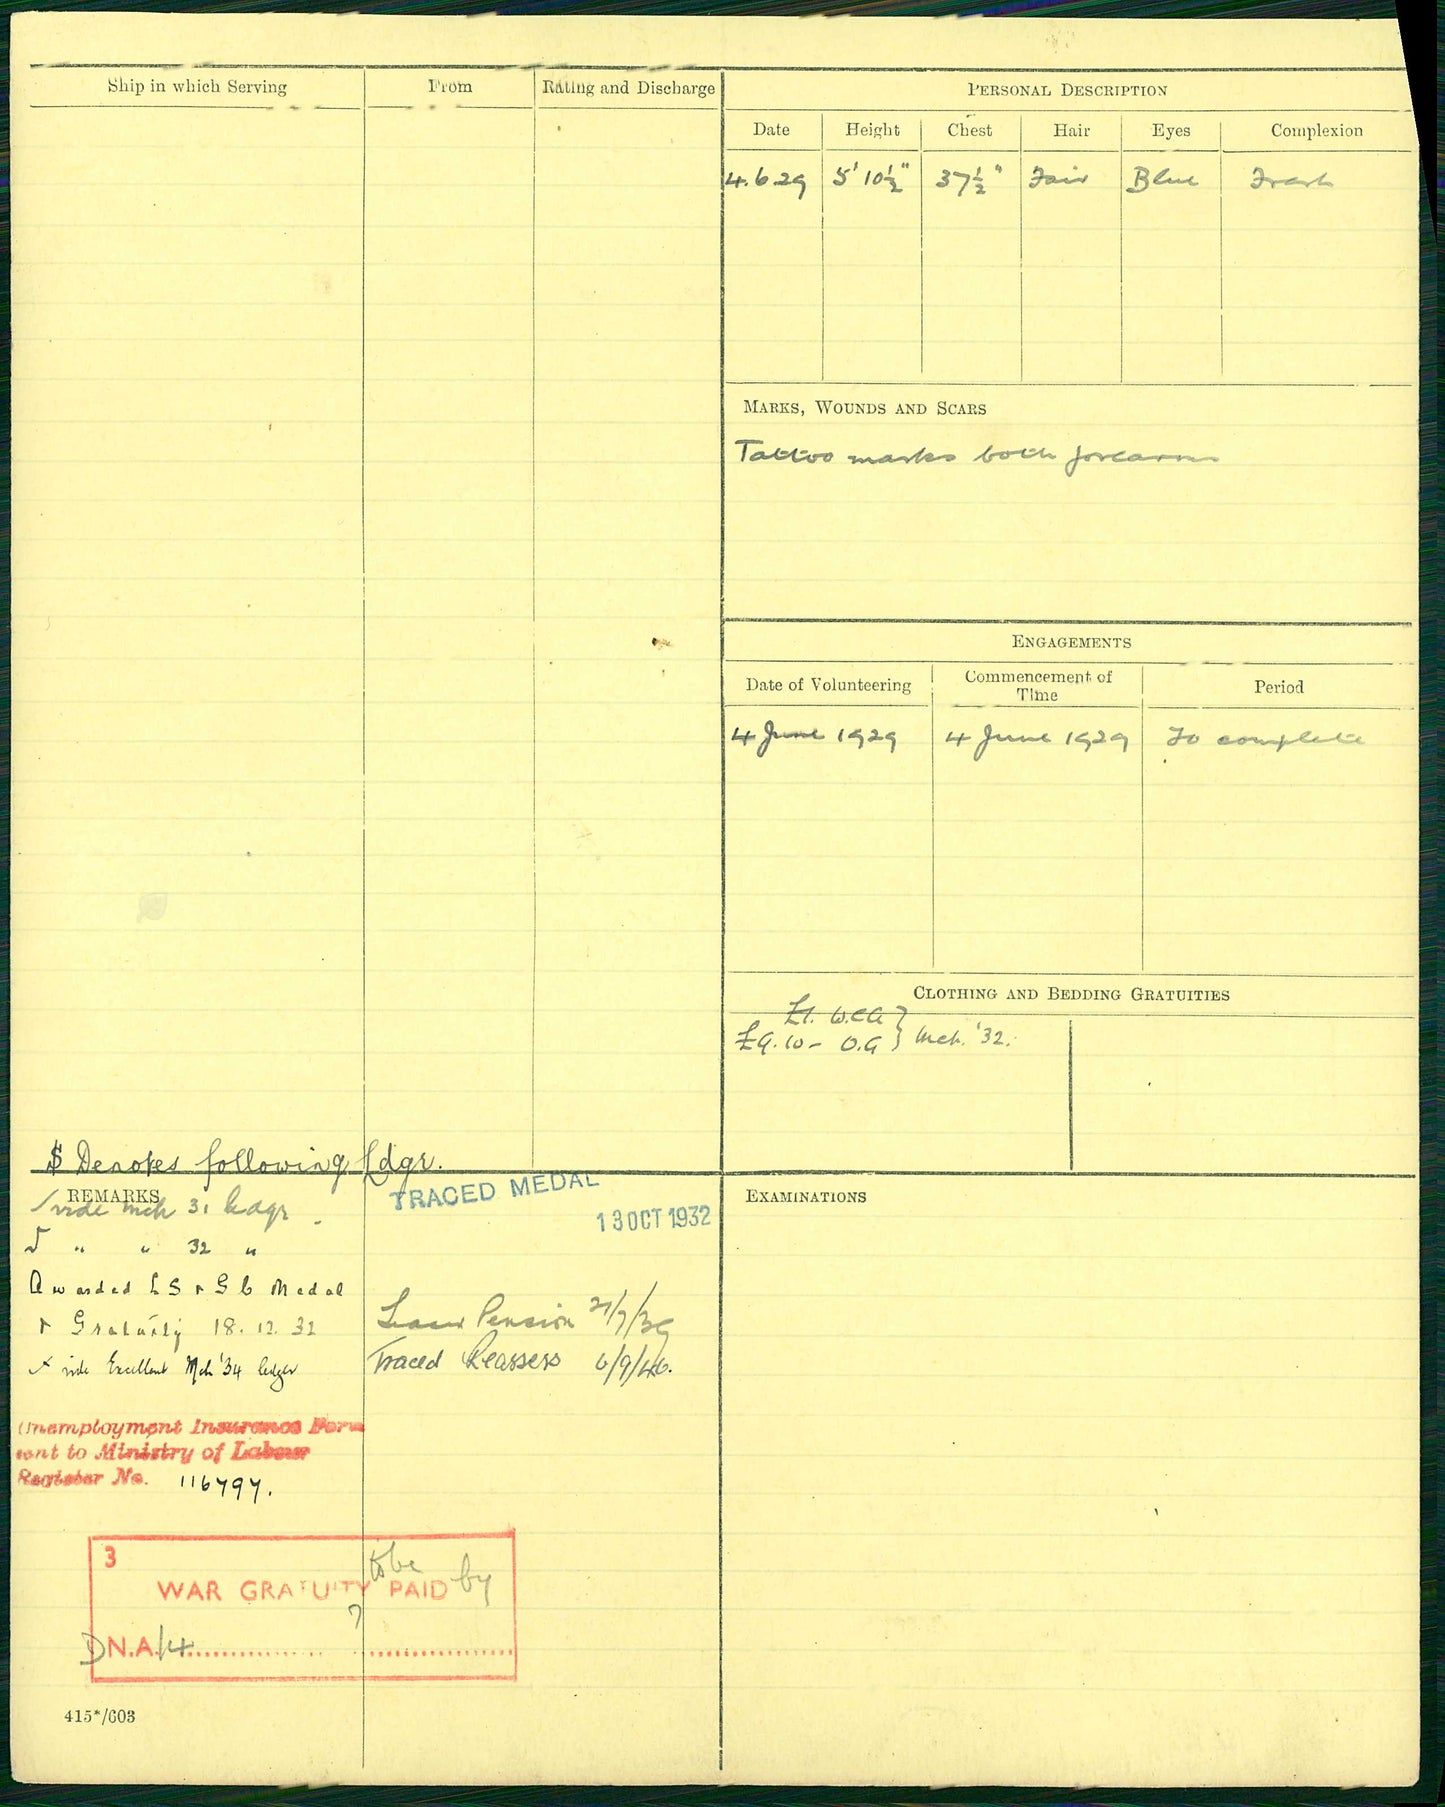 Ship in which Serving
From
Rating and Discharge
PERSONAL DESCRIPTION
Date
Height
Chest
Hair
Eyes
Complexion
4.6.29
5' 10½"
37½"
Fair
Blue
Fresh
MARKS, WOUNDS AND SCARS
Tattoo marks both forearms
ENGAGEMENTS
Date of Volunteering
Commencement of
Time
Period
4 June 1929
4 June 1929
To complete
CLOTHING AND BEDDING GRATUITIES
£1.
£9.10- O.G } Mch. '32.
$ Denotes following Ldgr.
REMARKS
vide Mch 31 ledgr
" " 32 "
Awarded LS & GC Medal
& Gratuity 18.12.32
vide Excellent Mch '34 ledger
Unemployment Insurance Form
sent to Ministry of Labour
Register No. 116797.
TRACED MEDAL
13 OCT 1932
Pension 21/7/39
Traced Reassess 6/9/46.
3
WAR GRATUITY to be PAID by
?
D N.A. 14
415*/603
EXAMINATIONS